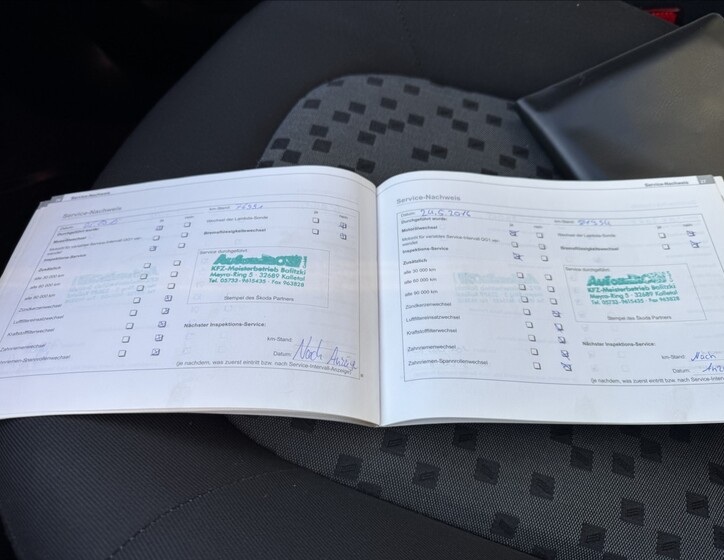 Service-Nachweis
Service-Nachweis
km-Stand:
Durchgeführt wurde:
Wechsel der Lambda-Sonde
Motorölwechsel
Bremsflüssigkeitswechsel
Inspektions-Service
Service durchgeführt:
KFZ-Meisterbetrieb Bolitzki
Meyra-Ring 5 · 32689 Kalletal
Tel. 05733-9615435 · Fax 963828
Stempel des Škoda Partners
Zusätzlich
alle 30 000 km
alle 60 000 km
alle 90 000 km
Zündkerzenwechsel
Luftfiltereinsatzwechsel
Kraftstofffilterwechsel
Zahnriemenwechsel
Zahnriemen-Spannrollenwechsel
Nächster Inspektions-Service:
km-Stand:
Datum: Nach Anzeige
(je nachdem, was zuerst eintritt bzw. nach Service-Intervall-Anzeige)
Service-Nachweis
27
Service-Nachweis
Datum: 24.5.2016
km-Stand:
Durchgeführt wurde:
Wechsel der Lambda-Sonde
Motorölwechsel
Bremsflüssigkeitswechsel
Inspektions-Service
Service durchgeführt:
KFZ-Meisterbetrieb Bolitzki
Meyra-Ring 5 · 32689 Kalletal
Tel. 05733-9615435 · Fax 963828
Stempel des Škoda Partners
Zusätzlich
alle 30 000 km
alle 60 000 km
alle 90 000 km
Zündkerzenwechsel
Luftfiltereinsatzwechsel
Kraftstofffilterwechsel
Zahnriemenwechsel
Zahnriemen-Spannrollenwechsel
Nächster Inspektions-Service:
km-Stand: Nach
Datum:
(je nachdem, was zuerst eintritt bzw. nach Service-Inter